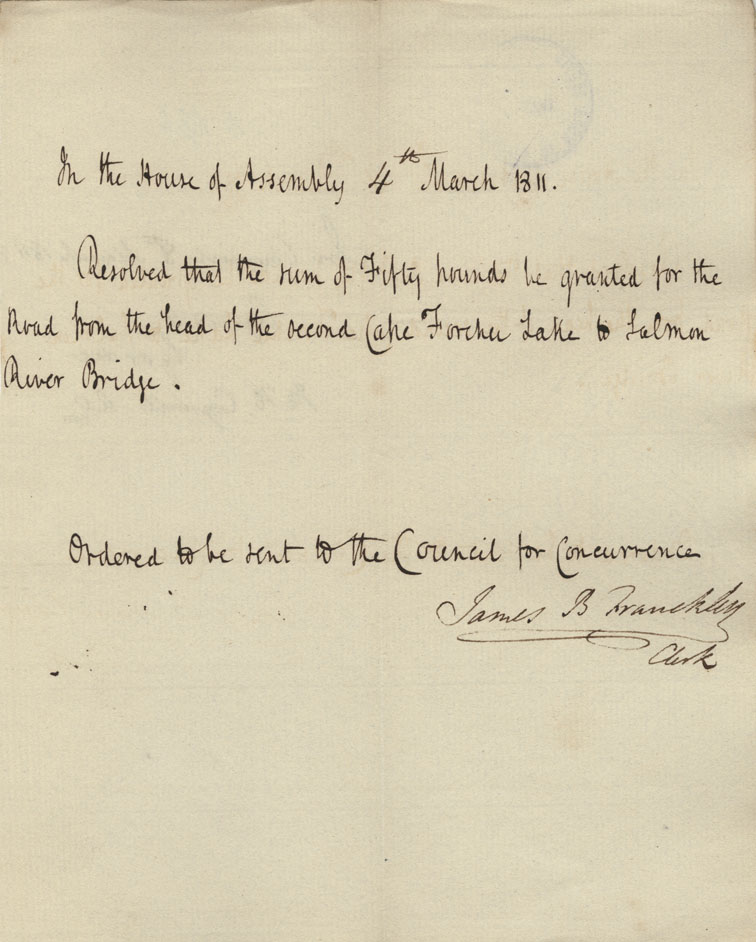 In the House of Assembly 4th March 1811.
Resolved that the sum of Fifty pounds be granted for the
Road from the head of the second Cape Forchu Lake to Salmon
River Bridge.
Ordered to be sent to the Council for Concurrence
James B Franckley
Clerk